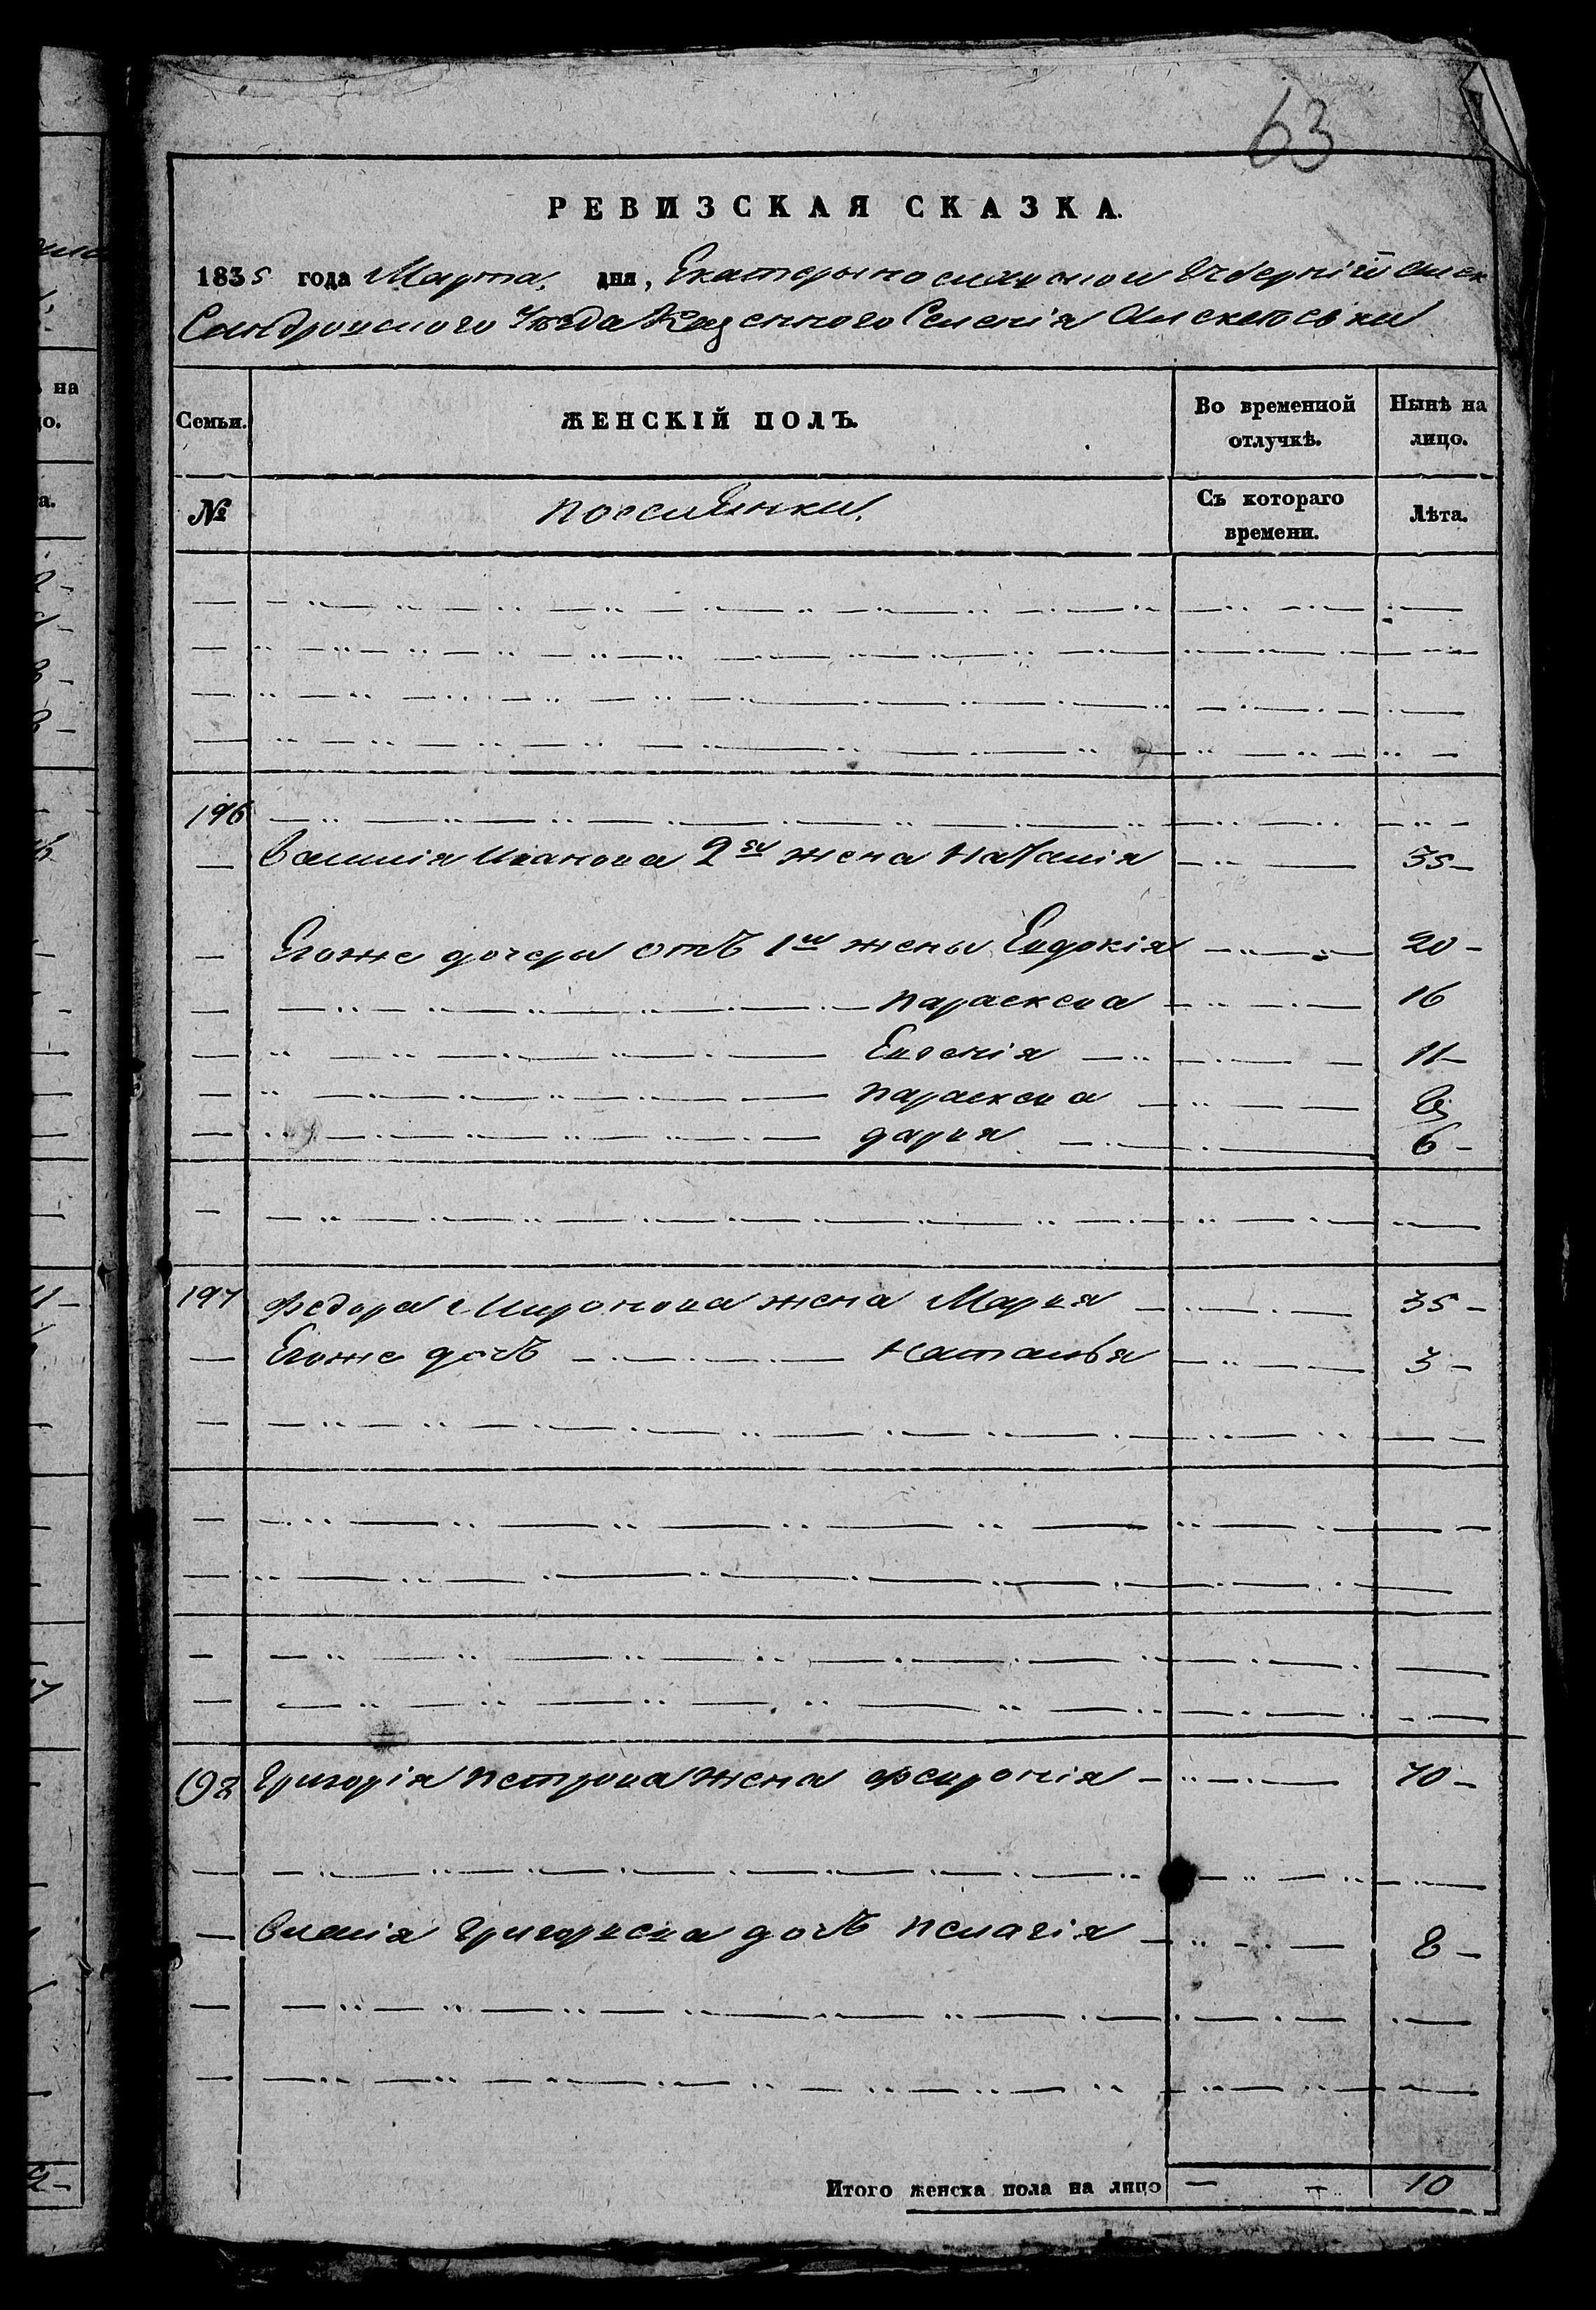 63
РЕВИЗСКАЯ СКАЗКА.
1835 года Марта, дня, Екатеринославской Губерніи Алек
Сандровского Уѣзда Казенного Селенія Алексеевки
Семьи. ЖЕНСКІЙ ПОЛЪ. Во временной отлучкѣ. Нынѣ на лицо.
№ поселянки. Съ котораго времени. Лѣта.
196
Василія Иванова 2я жена Наталія 35
Егоже дочеры отъ 1й жены Евдокія 20
Параскева 16
Евгенія 11
Параскева 8
дарья 6
197 Федора Миронова жена Марья 35
Егоже дочь Наталья 3
198 Григорія Петрова жена Февронія 70
Григорьева дочь Пелагія 8
Итого женска пола на лицо 10